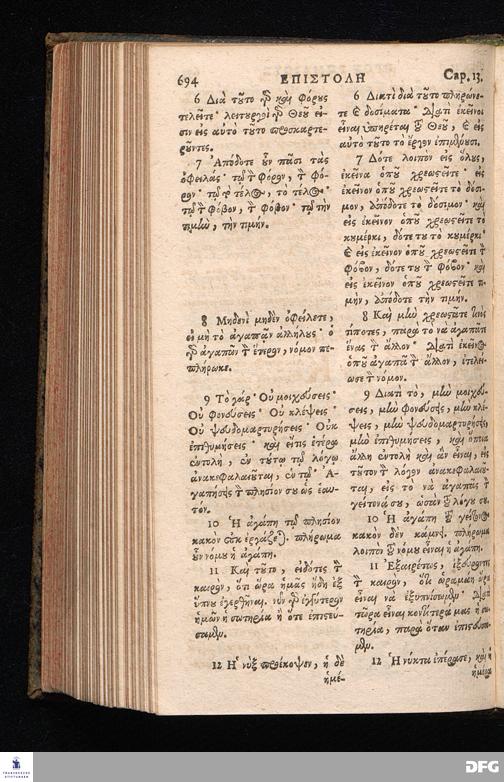 694 ΕΠΙΣΤΟΛΗ Cap. 13.
6 Διὰ τοῦτο γὰρ καὶ φόρους
τελεῖτε· λειτουργοὶ γὰρ Θεοῦ εἰ-
σιν εἰς αὐτὸ τοῦτο προσκαρτε-
ροῦντες.
7 Ἀπόδοτε οὖν πᾶσι τὰς
ὀφειλάς· τῷ τὸν φόρον, τὸν φό-
ρον· τῷ τὸ τέλος, τὸ τέλος·
τῷ τὸν φόβον, τὸν φόβον· τῷ τὴν
τιμὴν, τὴν τιμήν.
8 Μηδενὶ μηδὲν ὀφείλετε,
εἰ μὴ τὸ ἀγαπᾶν ἀλλήλους· ὁ
γὰρ ἀγαπῶν τὸν ἕτερον, νόμον πε-
πλήρωκε.
9 Τὸ γάρ· Οὐ μοιχεύσεις·
Οὐ φονεύσεις· Οὐ κλέψεις·
Οὐ ψευδομαρτυρήσεις· Οὐκ
ἐπιθυμήσεις· καὶ εἴτις ἑτέρα
ἐντολὴ, ἐν τούτῳ τῷ λόγῳ
ἀνακεφαλαιοῦται, ἐν τῷ· Ἀ-
γαπήσεις τὸν πλησίον σου ὡς ἑαυ-
τόν.
10 Ἡ ἀγάπη τῷ πλησίον
κακὸν οὐκ ἐργάζεται. πλήρωμα
οὖν νόμου ἡ ἀγάπη.
11 Καὶ τοῦτο, εἰδότες τὸν
καιρὸν, ὅτι ὥρα ἡμᾶς ἤδη ἐξ
ὕπνου ἐγερθῆναι. νῦν γὰρ ἐγγύτερον
ἡμῶν ἡ σωτηρία ἢ ὅτε ἐπιστεύ-
σαμεν.
12 Ἡ νὺξ προέκοψεν, ἡ δὲ
ἡμέ-
6 Διατὶ διὰ τοῦτο πληρώνε-
τε καὶ δοσίματα· διατὶ ἐκεῖνοι
εἶναι ὑπηρέται τοῦ Θεοῦ, καὶ εἰς
αὐτὸ τοῦτο τὸ ἔργον ἐπιμένουσι.
7 Δότε λοιπὸν εἰς ὅλους,
ἐκεῖνα ὁποῦ χρεωστεῖτε· εἰς
ἐκεῖνον ὁποῦ χρεωστεῖτε τὸ δόσι-
μον, ἀπόδοτε τὸ δόσιμον· καὶ
εἰς ἐκεῖνον ὁποῦ χρεωστεῖτε τὸ
κυμέρκι, δότε του τὸ κυμέρκι·
καὶ εἰς ἐκεῖνον ὁποῦ χρεωστεῖτε τὸν
φόβον, δότε του τὸν φόβον· καὶ
εἰς ἐκεῖνον ὁποῦ χρεωστεῖτε τι-
μὴν, ἀπόδοτε τὴν τιμήν.
8 Καὶ μὴν χρεωστᾶτε τινὸς
τίποτες, παρὰ τὸ νὰ ἀγαπᾶτε
ἕνας τὸν ἄλλον· διατὶ ἐκεῖνος
ὁποῦ ἀγαπᾷ τὸν ἄλλον, ἐτελεί-
ωσε τὸν νόμον.
9 Διατὶ τὸ, μὴν μοιχεύ-
σεις, μὴν φονεύσῃς, μὴν κλέ-
ψεις, μὴν ψευδομαρτυρήσῃς,
μὴν ἐπιθυμήσεις, καὶ ὅποια
ἄλλη ἐντολὴ καὶ ἂν εἶναι, εἰς
τοῦτον τὸν λόγον ἀνακεφαλαιοῦ-
ται, εἰς τὸ νὰ ἀγαπᾷς τὸν
γείτονά σου, ὡσὰν τοῦ λόγου σου.
10 Ἡ ἀγάπη τοῦ γείτονος
κακὸν δὲν κάμνει. πλήρωμα
λοιπὸν τοῦ νόμου εἶναι ἡ ἀγάπη.
11 Ἐξαιρέτως, ἐξεύροντες
τὸν καιρὸν, ὅτι ὥρα μας ὥρα
εἶναι νὰ ἐξυπνίσωμεν· διατὶ
τώρα εἶναι κοντύτερα μας ἡ σω-
τηρία, παρὰ ὅταν ἐπιστεύσα-
μεν.
12 Ἡ νύκτα ἐπέρασε, καὶ ἡ
ἡμέρα
FRANCKESCHE STIFTUNGEN
DFG